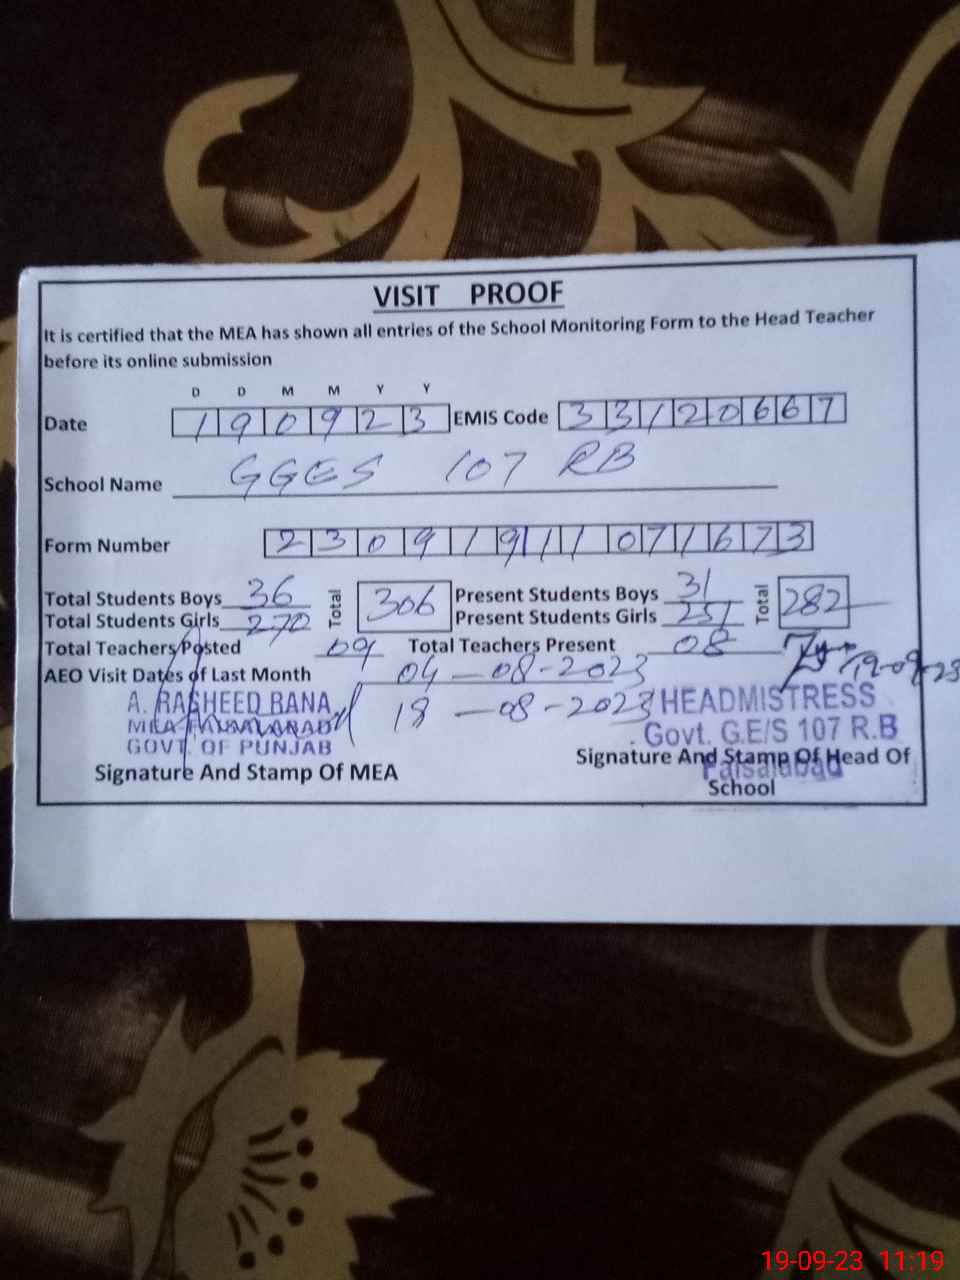 VISIT PROOF
It is certified that the MEA has shown all entries of the School Monitoring Form to the Head Teacher
before its online submission
D D M M Y Y
Date 190923 EMIS Code 33120667
School Name GGES 107 RB
Form Number 23091911071673
Total Students Boys 36 Total 306 Present Students Boys 31 Total 282
Total Students Girls 270 Present Students Girls 251
Total Teachers Posted 09 Total Teachers Present 08
19-09-23
AEO Visit Dates of Last Month 04-08-2023
18-08-2023
A. RASHEED RANA
MEA FAISALABAD
GOVT. OF PUNJAB
Signature And Stamp Of MEA
HEADMISTRESS
Govt. G.E/S 107 R.B
Faisalabad
Signature And Stamp Of Head Of
School
19-09-23 11:19